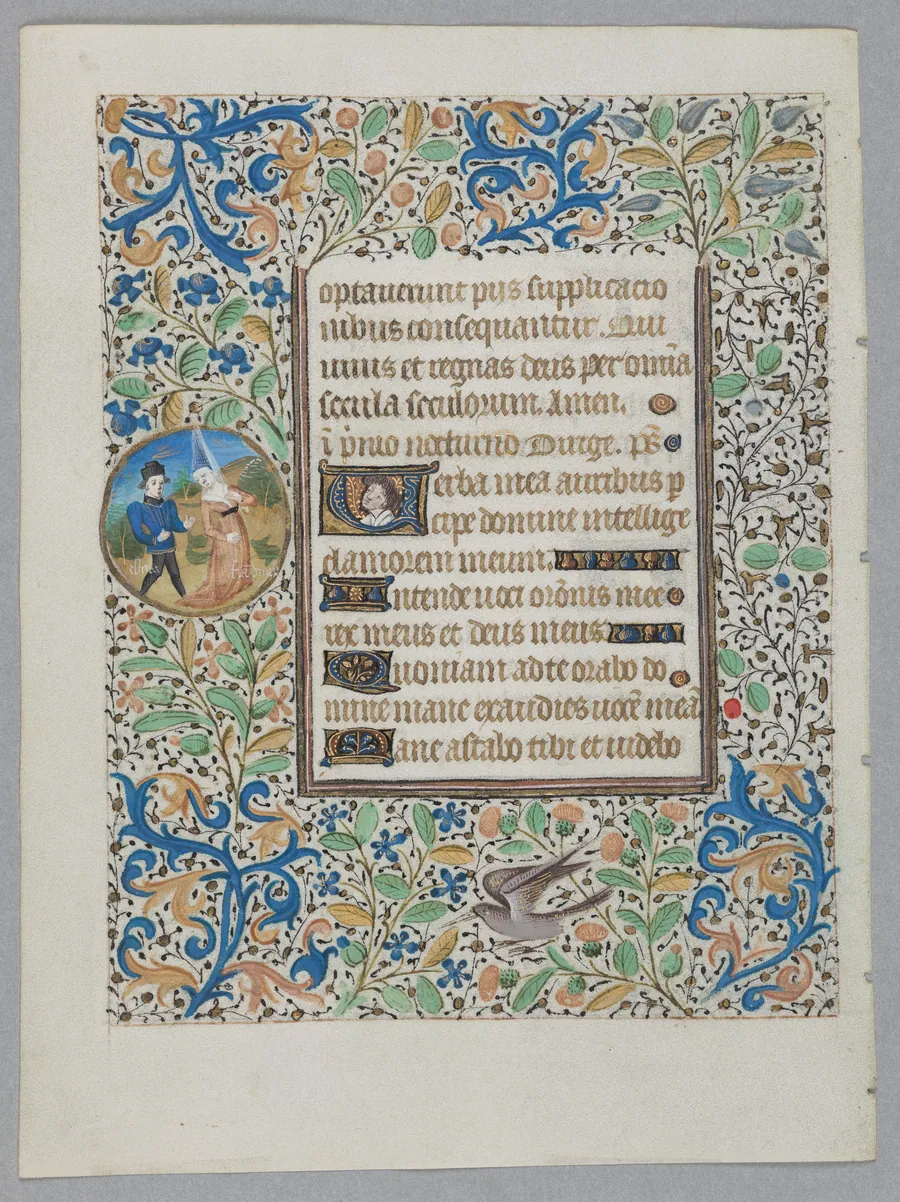 optauerunt pijs supplicacio
nibus consequantur. Qui
uiuis et regnas deus per om̄ia
secula seculorum. Amen.
ī p̄mo nocturno Dirige. ps̄
Verba mea auribus p
cipe domine intellige
clamorem meum.
Intende uoci orōnis mee
rex meus et deus meus
Quoniam ad te orabo do
mine mane exaudies uocē meā
Mane astabo tibi et uidebo